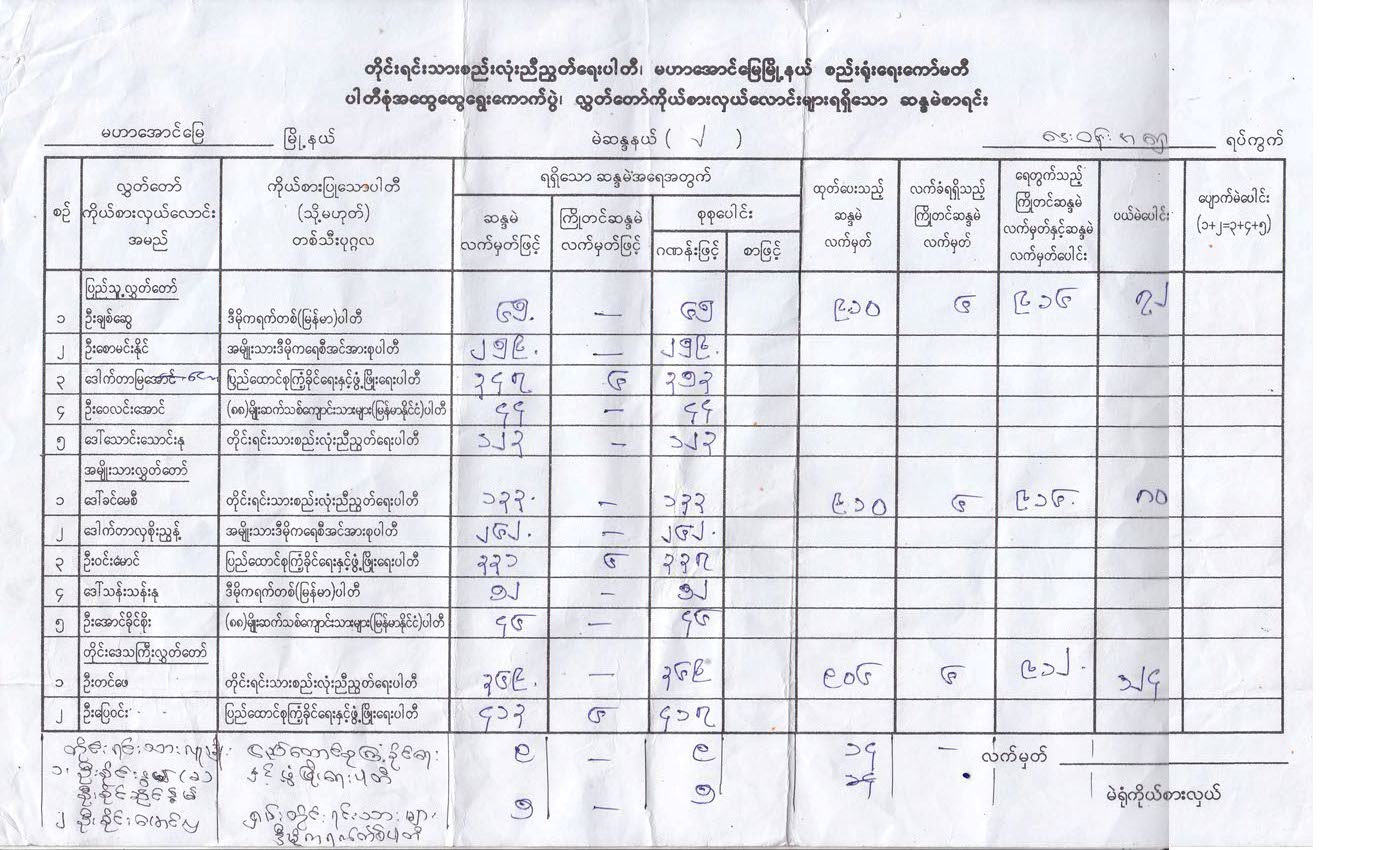 တိုင်းရင်းသားစည်းလုံးညီညွတ်ရေးပါတီ၊ မဟာအောင်မြေမြို့နယ် စည်းရုံးရေးကော်မတီ
ပါတီစုံအထွေထွေရွေးကောက်ပွဲ၊ လွှတ်တော်ကိုယ်စားလှယ်လောင်းများရရှိသော ဆန္ဒမဲစာရင်း
မဟာအောင်မြေ မြို့နယ် မဲဆန္ဒနယ် ( ၂ ) ရပ်ကွက်
စဉ် လွှတ်တော် ကိုယ်စားလှယ်လောင်း အမည် ကိုယ်စားပြုသောပါတီ (သို့မဟုတ်) တစ်သီးပုဂ္ဂလ ရရှိသော ဆန္ဒမဲအရေအတွက် ထုတ်ပေးသည့် ဆန္ဒမဲ လက်မှတ် လက်ခံရရှိသည့် ကြိုတင်ဆန္ဒမဲ လက်မှတ် ရေတွက်သည့် ကြိုတင်ဆန္ဒမဲ လက်မှတ်နှင့်ဆန္ဒမဲ လက်မှတ်ပေါင်း ပယ်မဲပေါင်း ပျောက်မဲပေါင်း (၁+၂=၃+၄+၅)
ဆန္ဒမဲ လက်မှတ်ဖြင့် ကြိုတင်ဆန္ဒမဲ လက်မှတ်ဖြင့် စုစုပေါင်း
ဂဏန်းဖြင့် စာဖြင့်
ပြည်သူ့လွှတ်တော်
၁ ဦးချစ်ဆွေ ဒီမိုကရက်တစ်(မြန်မာ)ပါတီ ၆၅. — ၆၅ ၉၁၀ ၆ ၉၁၆ ၇၂
၂ ဦးစောမင်းနိုင် အမျိုးသားဒီမိုကရေစီအင်အားစုပါတီ ၂၅၉. — ၂၅၉.
၃ ဒေါက်တာမြအောင် ပြည်ထောင်စုကြံ့ခိုင်ရေးနှင့်ဖွံ့ဖြိုးရေးပါတီ ၃၄၇ ၆ ၃၅၃
၄ ဦးဝေလင်းအောင် (၈၈)မျိုးဆက်သစ်ကျောင်းသားများ(မြန်မာနိုင်ငံ)ပါတီ ၄၄ – ၄၄
၅ ဒေါ်သောင်းသောင်းနု တိုင်းရင်းသားစည်းလုံးညီညွတ်ရေးပါတီ ၁၂၃ – ၁၂၃
အမျိုးသားလွှတ်တော်
၁ ဒေါ်ခင်မေစီ တိုင်းရင်းသားစည်းလုံးညီညွတ်ရေးပါတီ ၁၃၃. – ၁၃၃ ၉၁၀ ၆ ၉၁၆. ၈၀
၂ ဒေါက်တာလှစိုးညွန့် အမျိုးသားဒီမိုကရေစီအင်အားစုပါတီ ၂၆၂. – ၂၆၂.
၃ ဦးဝင်းမောင် ပြည်ထောင်စုကြံ့ခိုင်ရေးနှင့်ဖွံ့ဖြိုးရေးပါတီ ၃၃၁ ၆ ၃၃၇
၄ ဒေါ်သန်းသန်းနု ဒီမိုကရက်တစ်(မြန်မာ)ပါတီ ၅၂ – ၅၂
၅ ဦးအောင်ခိုင်စိုး (၈၈)မျိုးဆက်သစ်ကျောင်းသားများ(မြန်မာနိုင်ငံ)ပါတီ ၄၆ – ၄၆
တိုင်းဒေသကြီးလွှတ်တော်
၁ ဦးတင်ဖေ တိုင်းရင်းသားစည်းလုံးညီညွတ်ရေးပါတီ ၃၆၉. — ၃၆၉ ၉၀၆ ၆ ၉၁၂. ၁၂၄
၂ ဦးပြေဝင်း ပြည်ထောင်စုကြံ့ခိုင်ရေးနှင့်ဖွံ့ဖြိုးရေးပါတီ ၄၁၃ ၆ ၄၁၇
တိုင်းရင်းသားလူမျိုး ပြည်ထောင်စုကြံ့ခိုင်ရေး ၉ – ၉ ၁၄ – လက်မှတ်
၁။ နှင့်ဖွံ့ဖြိုးရေးပါတီ
မဲရုံကိုယ်စားလှယ်
၂ တိုင်းရင်းသားများ ၅ – ၅
ဒီမိုကရက်တစ်ပါတီ